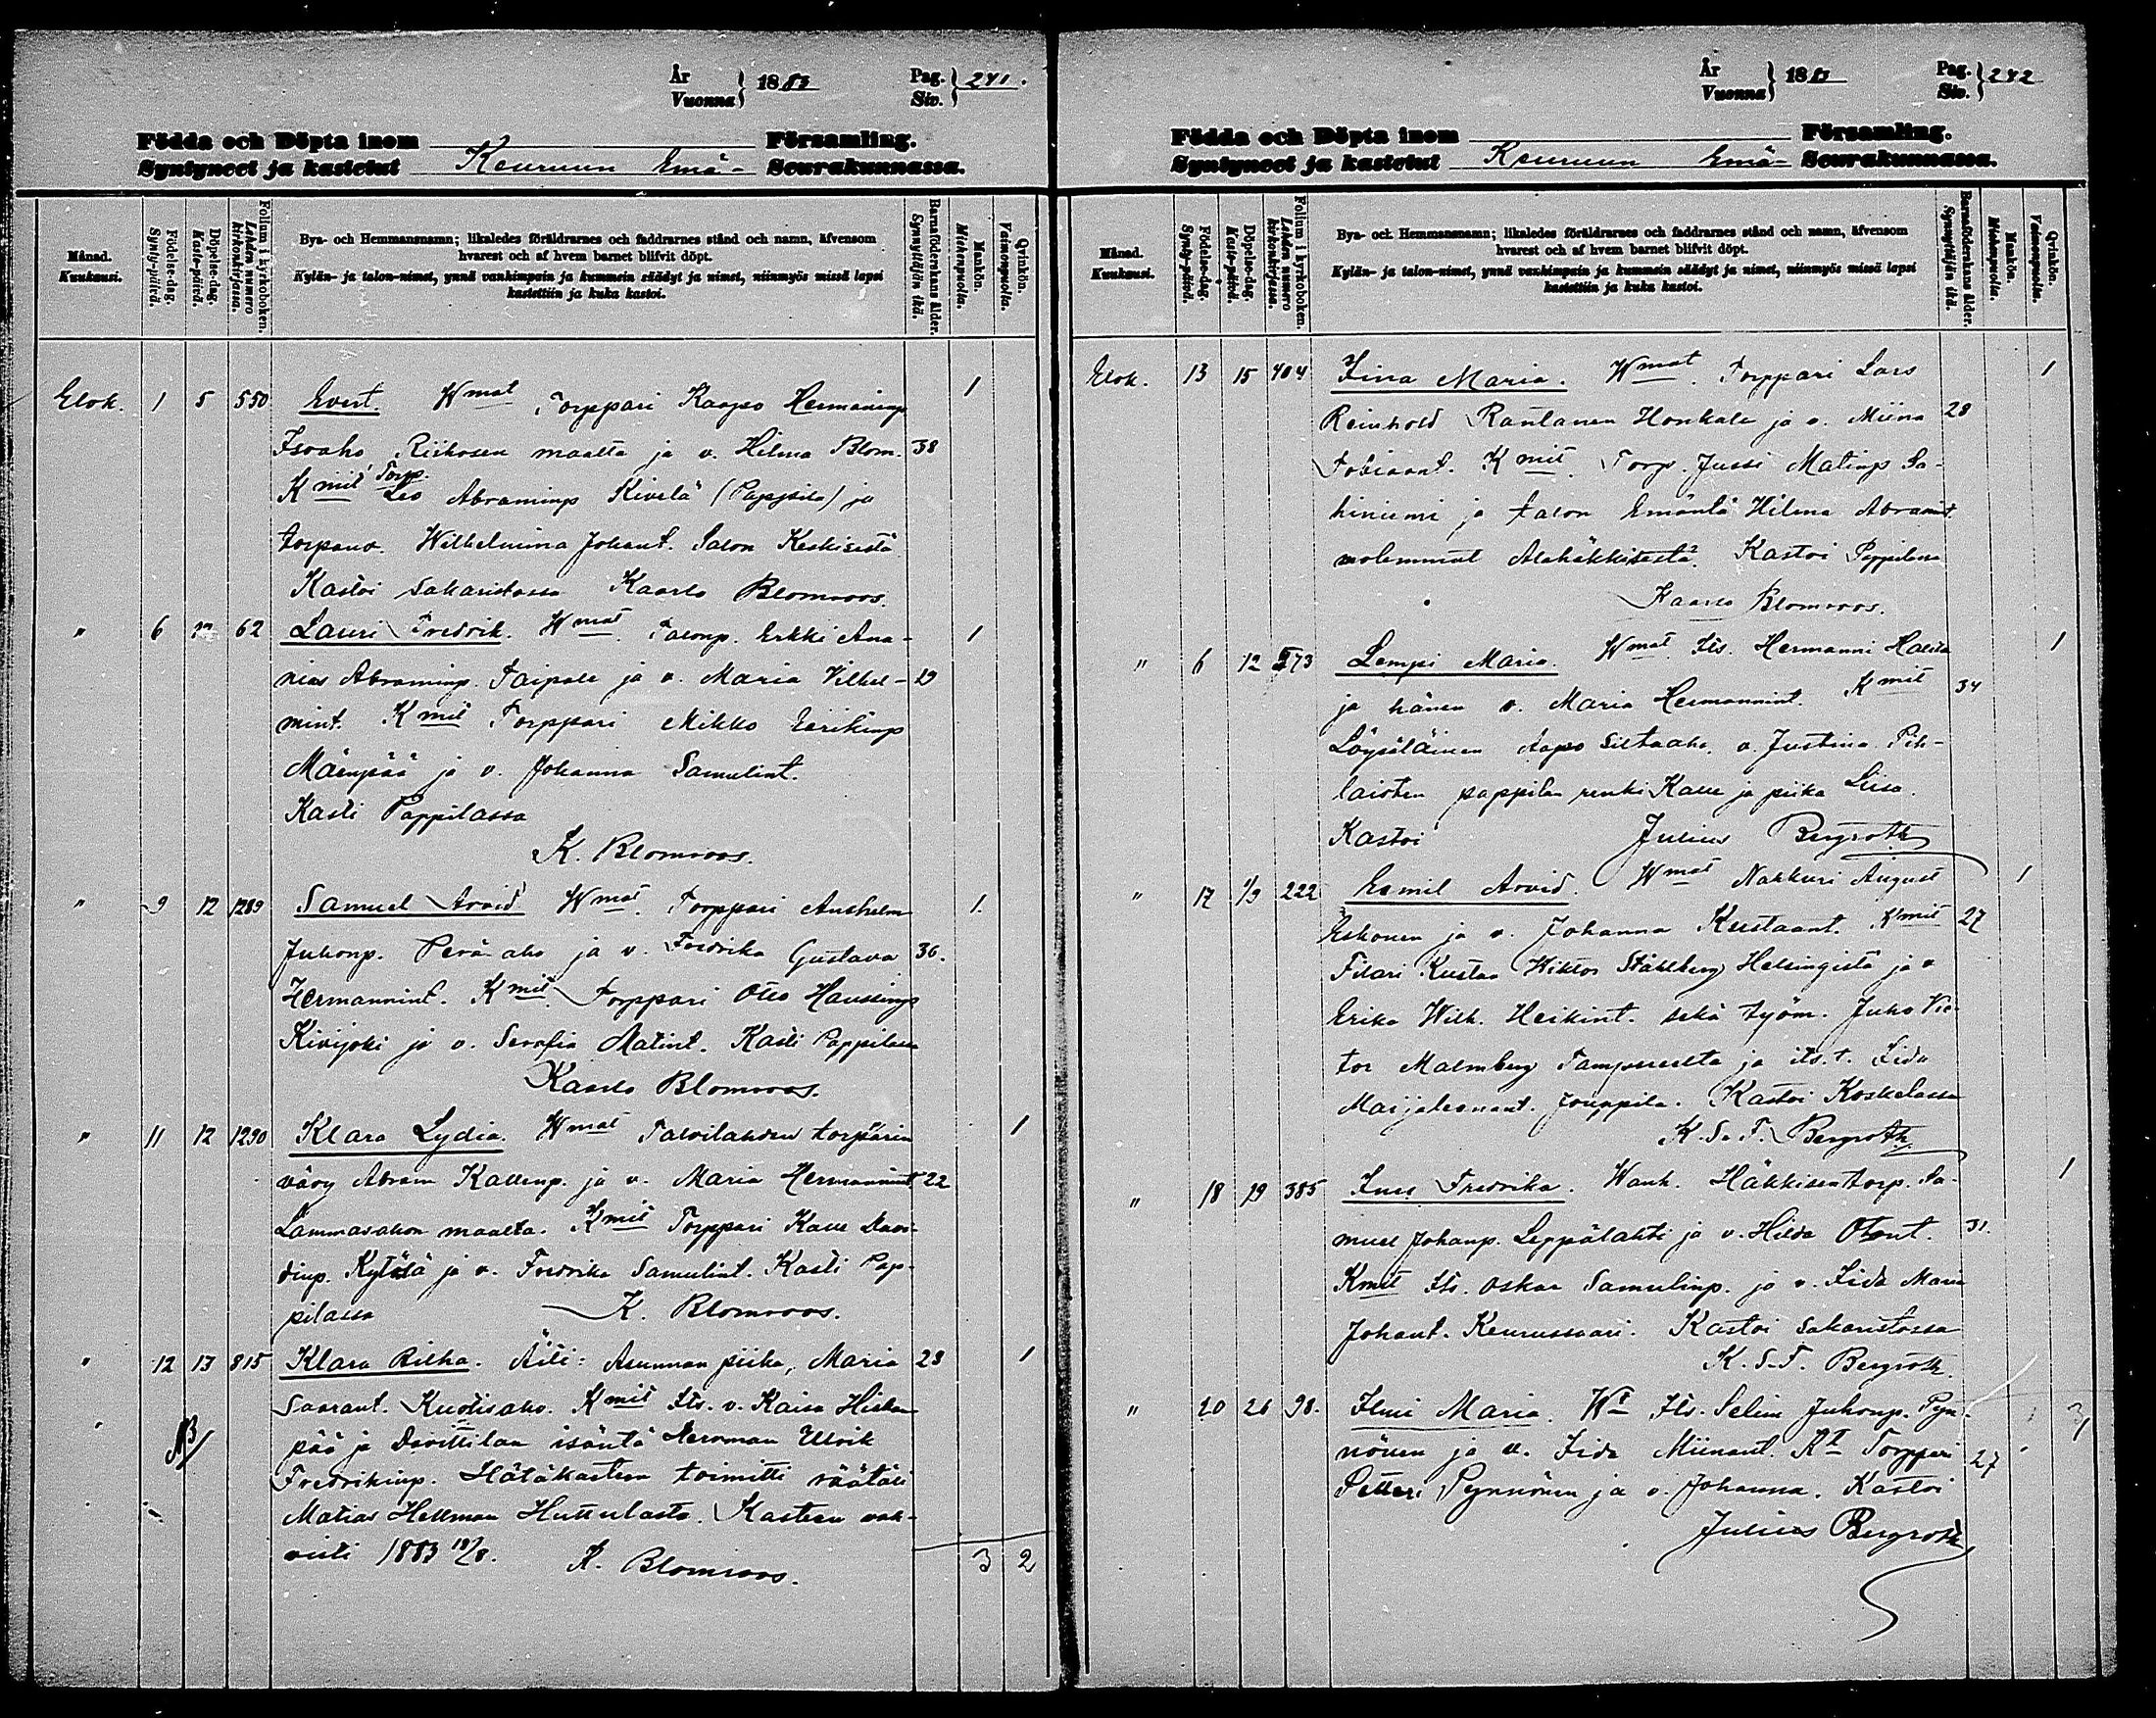 År
Vuonna } 1883 Pag.
Siv. } 241.
Födda och Döpta inom Församling.
Syntyneet ja kastetut Keuruun Emä- Seurakunnassa.
Månad.
Kuukausi.
Födelse-dag.
Synty-päivä.
Döpelse-dag.
Kaste-päivä.
Folium i kyrkoboken.
Lehden numero kirkonkirjassa.
Bya- och Hemmansnamn; likaledes föräldrarnes och faddrarnes stånd och namn, äfvensom
hvarest och af hvem barnet blifvit döpt.
Kylän- ja talon-nimet, ynnä vanhimpain ja kummein säädyt ja nimet, niinmyös missä lapsi
kastettiin ja kuka kastoi.
Barnaföderskans ålder.
Synnyttäjän ikä.
Mankön.
Miehenpuolia.
Qvinkön.
Vaimonpuolia.
Elok. 1 5 550 Evert. Wmat Torppari Kaapo Hermaninp 1
Isoaho Riihosen maalta ja v. Hilma Blom. 38
Kmit Torp. Leo Abraminp Kivelä (Pappila) ja
torpanv. Wilhelmina Johant. Salon Keskisestä
Kastoi Sakaristossa Kaarlo Blomroos.
" 6 12 62 Lauri Fredrik. Wmat. Talonp. Erkki Ana- 1
nias Abraminp. Taipale ja v. Maria Vilhel- 29
mint. Kmit Torppari Mikko Eerikinp
Mäenpää ja v. Johanna Samulint.
Kasti Pappilassa
K. Blomroos.
" 9 12 1289 Samuel Arvid Wmat. Torppari Anshelm 1.
Juhonp. Peräaho ja v. Fredrika Gustava 36.
Hermannint. Kmit Torppari Otto Haussinp
Kivijoki ja v. Serafia Matint. Kasti Pappilassa
Kaarlo Blomroos.
" 11 12 1290 Klara Lydia. Wmat Talvilahden torpparin 1
vävy Abram Kallenp. ja v. Maria Hermannint 22
Lammasahon maalta. Kmit Torppari Kalle Davi-
dinp. Kytölä ja v. Fredrika Samulint. Kasti Pap-
pilassa K. Blomroos.
" 12 13 815 Klara Rilha. Äiti: Asunnan piika, Maria 23 1
Saarant. Kuotisaho. Kmit Its. v. Kaisa Hietan-
pää ja Davittilan isäntä Herman Ulrik
Fredrikinp. Hätäkasteen toimitti räätäli
Matias Hellman Huttulasta. Kasteen vah-
visti 1883 19/8. K. Blomroos. 3 2
År
Vuonna } 1883 Pag.
Siv. } 242
Födda och Döpta inom Församling.
Syntyneet ja kastetut Keuruun Emä- Seurakunnassa.
Månad.
Kuukausi.
Födelse-dag.
Synty-päivä.
Döpelse-dag.
Kaste-päivä.
Folium i kyrkoboken.
Lehden numero kirkonkirjassa.
Bya- och Hemmansnamn; likaledes föräldrarnes och faddrarnes stånd och namn, äfvensom
hvarest och af hvem barnet blifvit döpt.
Kylän- ja talon-nimet, ynnä vanhimpain ja kummein säädyt ja nimet, niinmyös missä lapsi
kastettiin ja kuka kastoi.
Barnaföderskans ålder.
Synnyttäjän ikä.
Mankön.
Miehenpuolia.
Qvinkön.
Vaimonpuolia.
Elok. 13 15 404 Fina Maria. Wmat. Torppari Lars 1
Reinhold Rantanen Honkala ja v. Miina 28
Tobiaant. Kmit. Torp. Jussi Matinp Sa-
hiniemi ja talon Emäntä Hilma Abramint.
molemmat Alahäkkisestä. Kastoi Pappilassa
Kaarlo Blomroos.
" 6 12 573 Lempi Maria. Wmat Its. Hermanni 1
ja hänen v. Maria Hermannint. Kmit 34
Löysäläinen Aapo Siltaaho, v. Justina Pih-
laisten pappilan renki Kalle ja piika Liisa.
Kastoi Julius Bergroth
" 17 1/9 222 Eemil Arvid. Wmat Nahkuri August 1
Eskonen ja v. Johanna Kustaant. Kmit 27
Filari Kustaa Wiktor Ståhlberg Helsingistä ja v
Erika Wilh. Heikint. sekä työm. Juho Vic-
tor Malmberg Tampereelta ja its. t. Iida
Maijaleenant. Jouppila. Kastoi Koskelassa
K. S. F. Bergroth
" 18 19 385 Fredrika. Wanh. Häkkisen torp. Sa- 1
muel Johanp. Leppälahti ja v. Hilda Otont. 31.
Kmit Its. Oskar Samulinp. ja v. Iida Maria
Johant. Keurussaari. Kastoi Sakaristossa
K. S. F. Bergroth.
" 20 26 98. Ilmi Maria. Wt Its. Selim Juhonp. Pyn-
nönen ja v. Iida Miinant. Kt Torppari 27
Petteri Pynnönen ja v. Johanna. Kastoi
Julius Bergroth